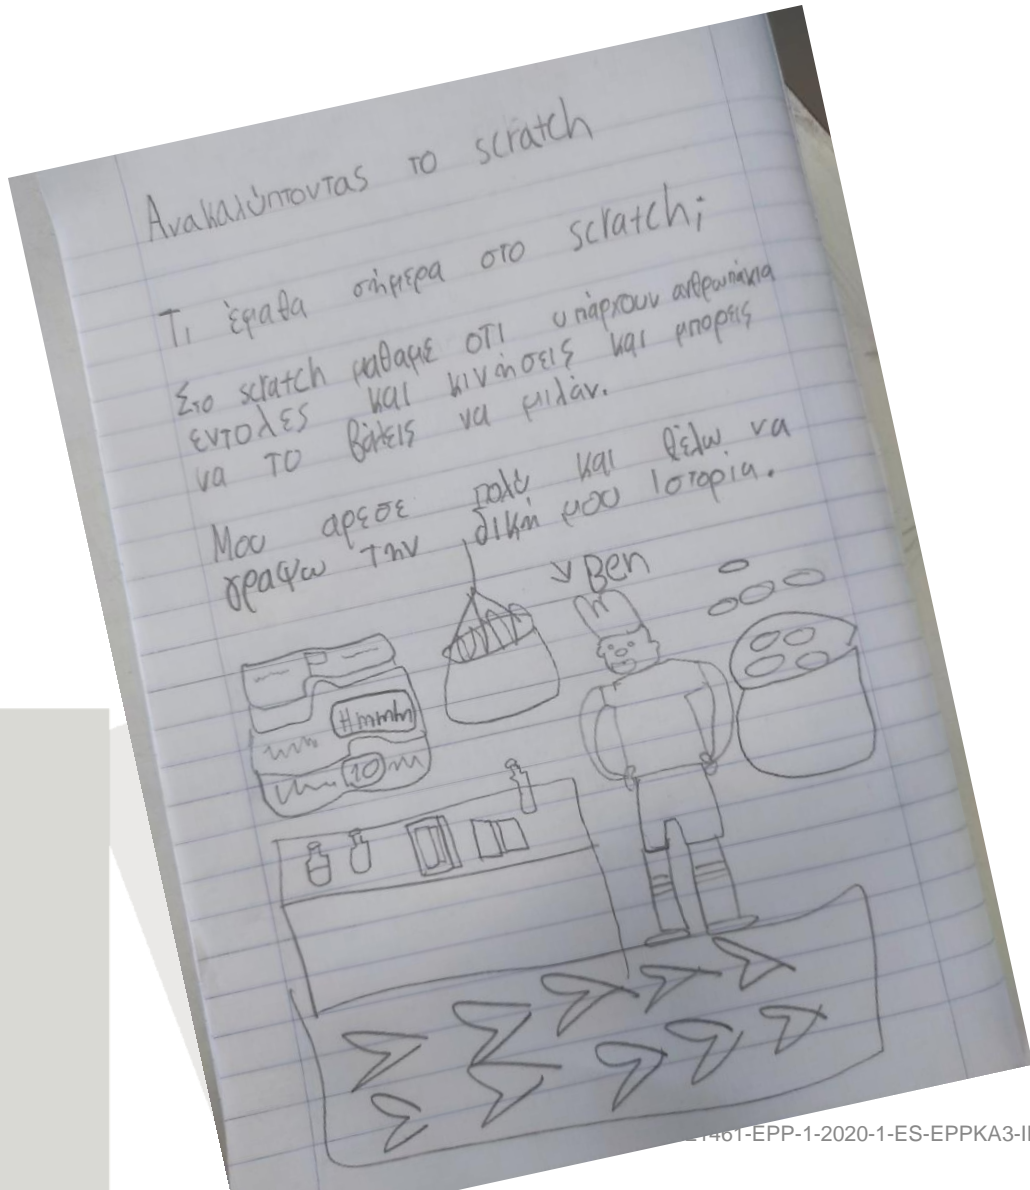 Ανακαλύπτοντας το scratch
Τι έμαθα σήμερα στο scratch;
Στο scratch μαθαμε οτι υπάρχουν ανθρωπάκια
εντολες και κινήσεις και μπορεις
να το βάλεις να μιλάν.
Μου αρεσε πολυ και θέλω να
γραψω την δικη μου ιστορία.
Ben
Hmmm
10
1461-EPP-1-2020-1-ES-EPPKA3-I